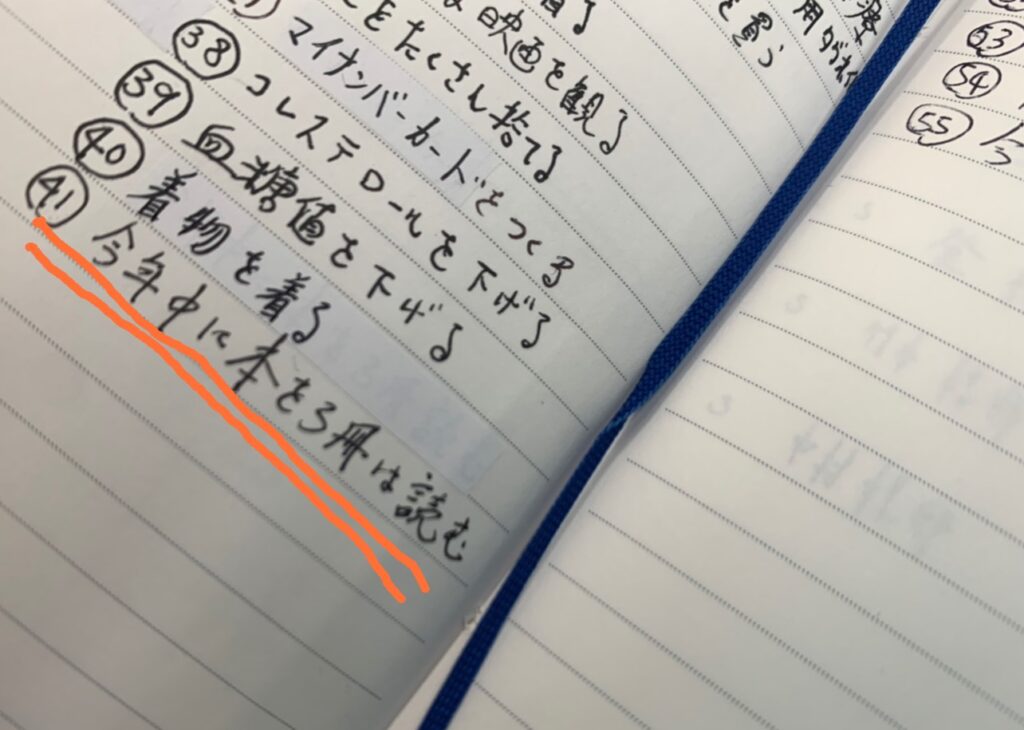 を観る
映画を観る
をたくさん捨てる
マイナンバーカードをつくる
㊳ コレステロールを下げる
㊴ 血糖値を下げる
㊵ 着物を着る
㊶ 今年中に本を3冊は読む
を買う
53
54
55 今